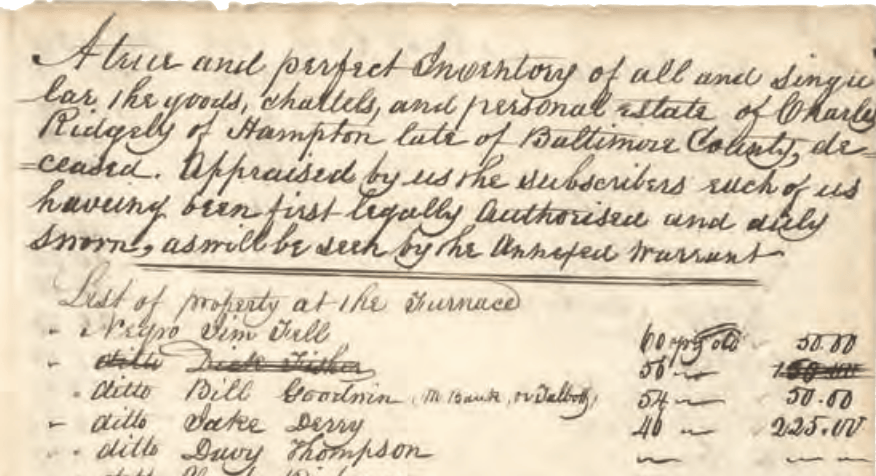 A true and perfect Inventory of all and singu
lar, the goods, chattels, and personal estate of Charles
Ridgely of Hampton late of Baltimore County, de=
=ceased. Appraised by us the subscribers each of us
haveing been first legally Authorised and duly
sworn, as will be seen by the Annexed Warrant
List of property at the Furnace
" Negro Jim Fell 60 yrs old 50.00
" ditto Dick Fisher 56 " 150.00
" ditto Bill Goodwin 54 " 50.00
" ditto Jake Derry 40 " 225.00
" ditto Davy Thompson " "